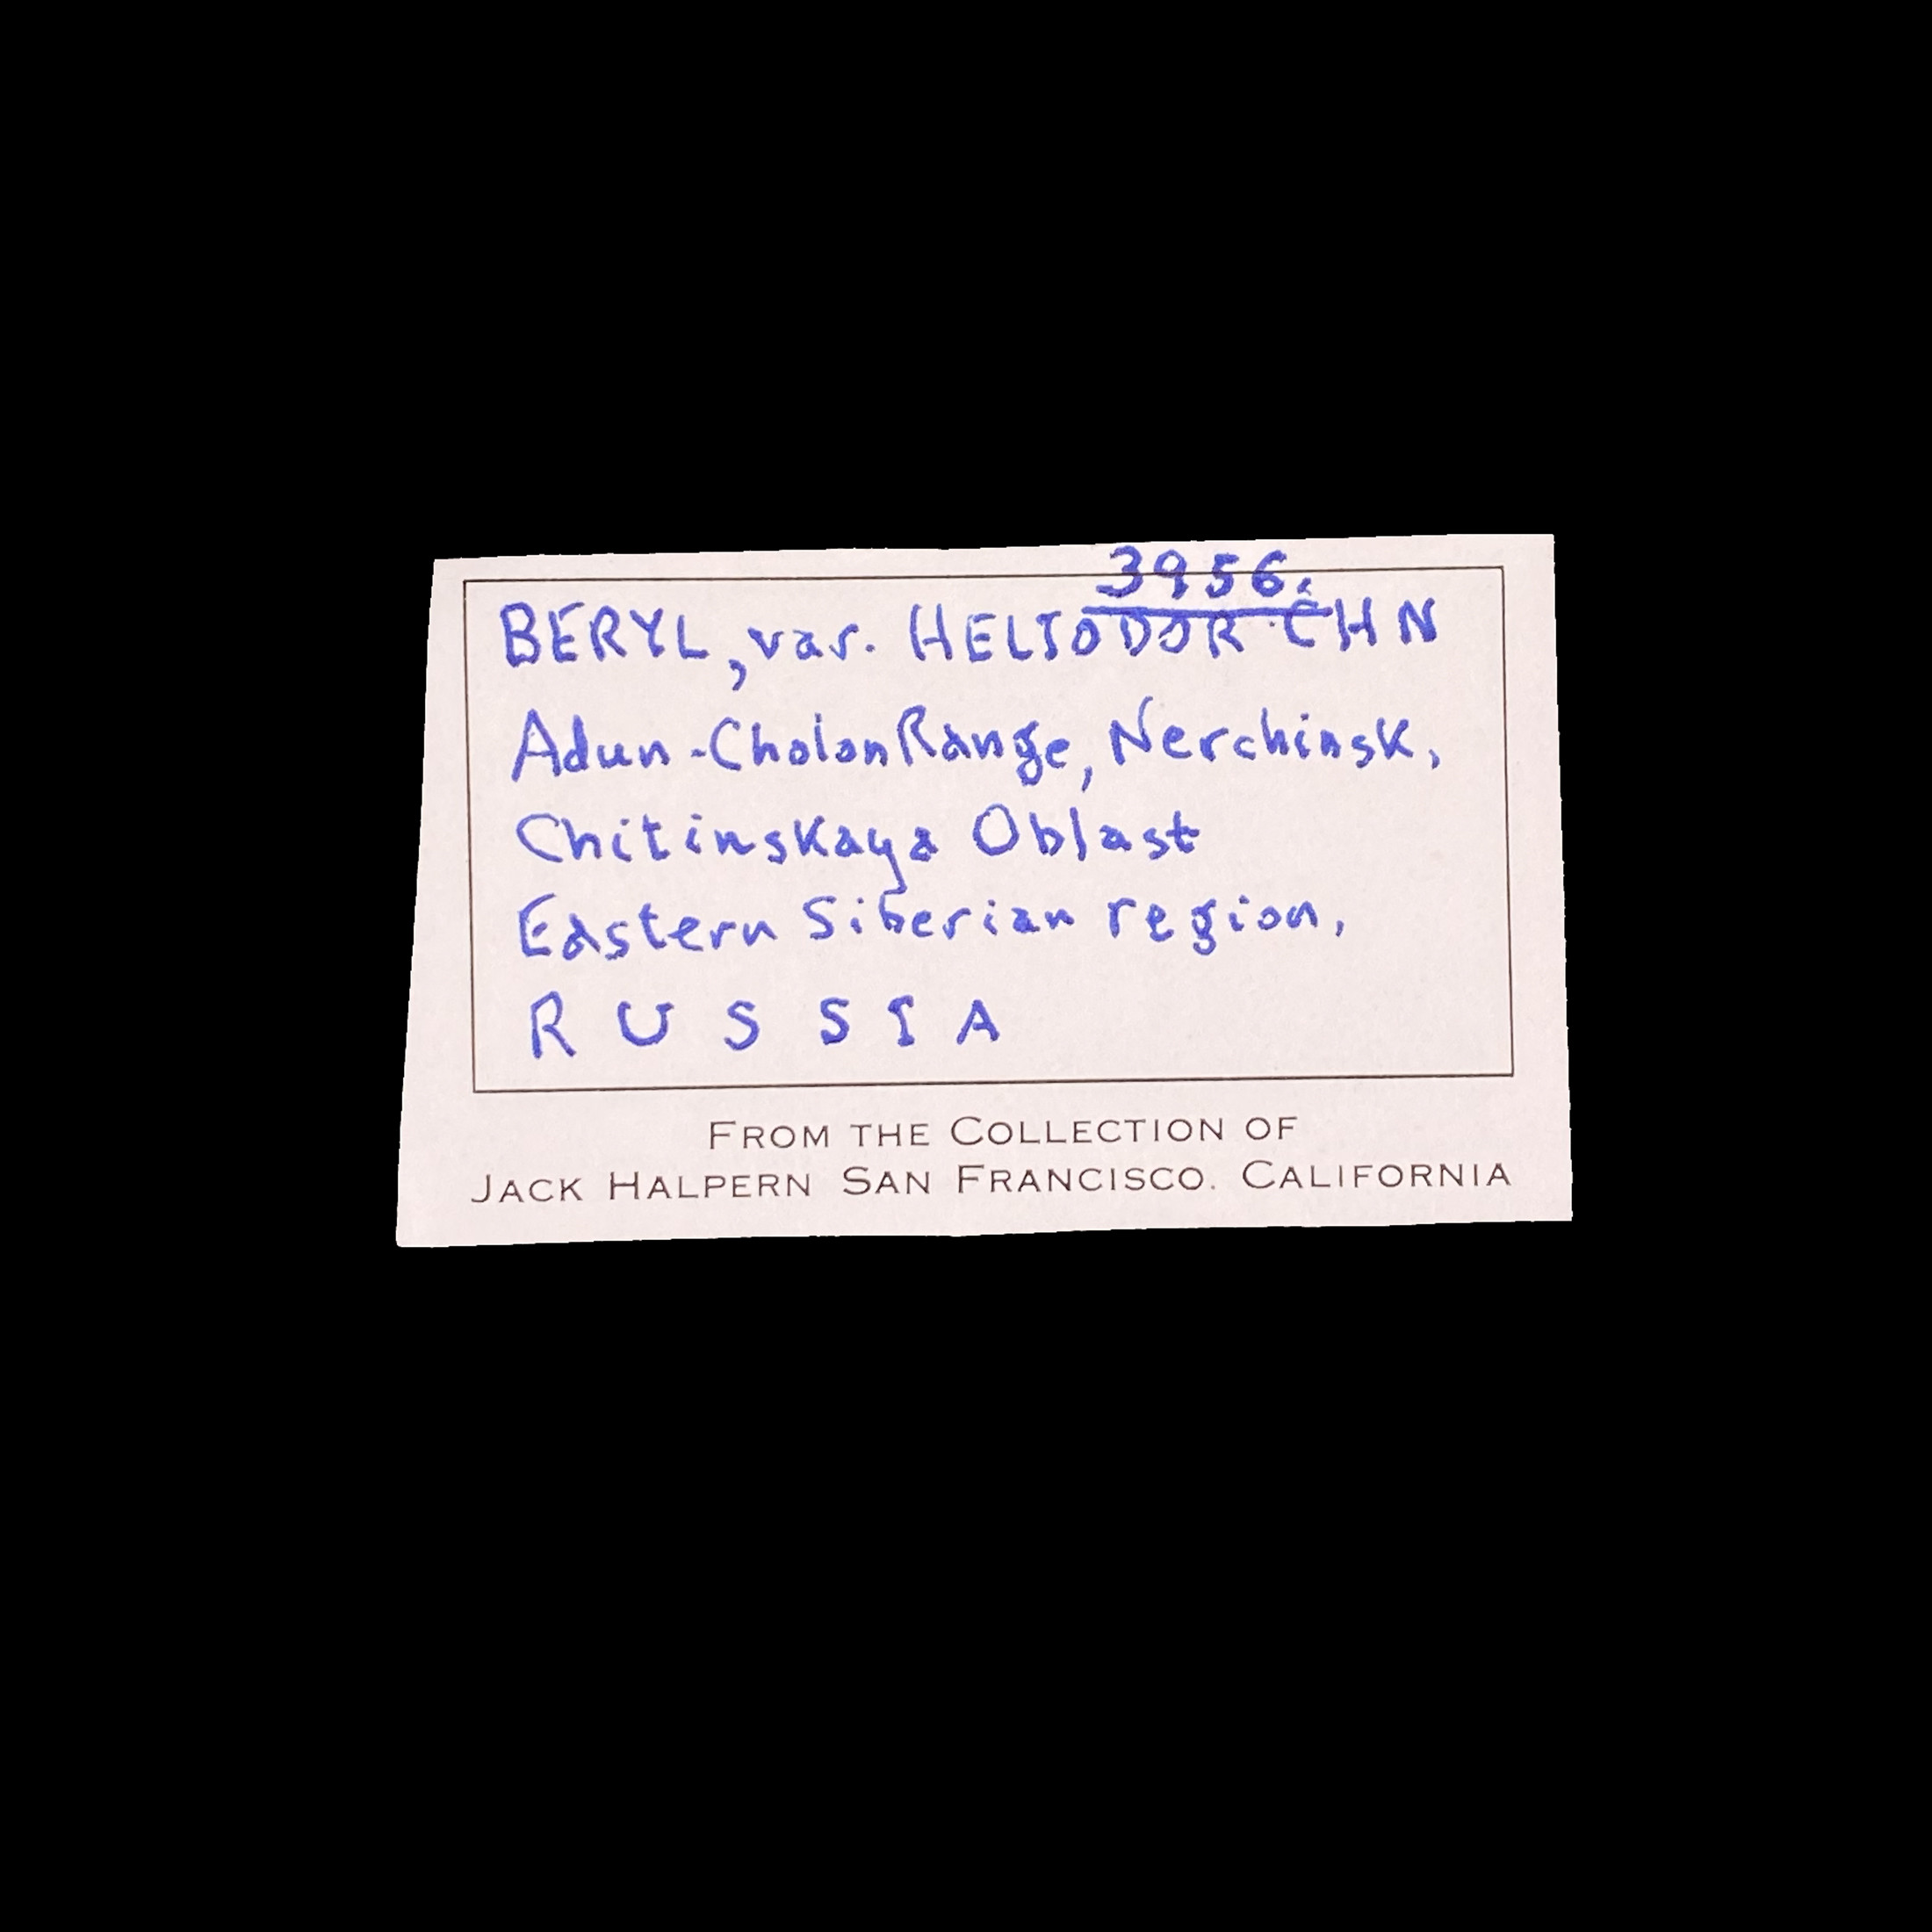 3956.
BERYL, var. HELIODOR CHN
Adun-Cholon Range, Nerchinsk,
Chitinskaya Oblast
Eastern Siberian region,
RUSSIA
FROM THE COLLECTION OF
JACK HALPERN SAN FRANCISCO. CALIFORNIA